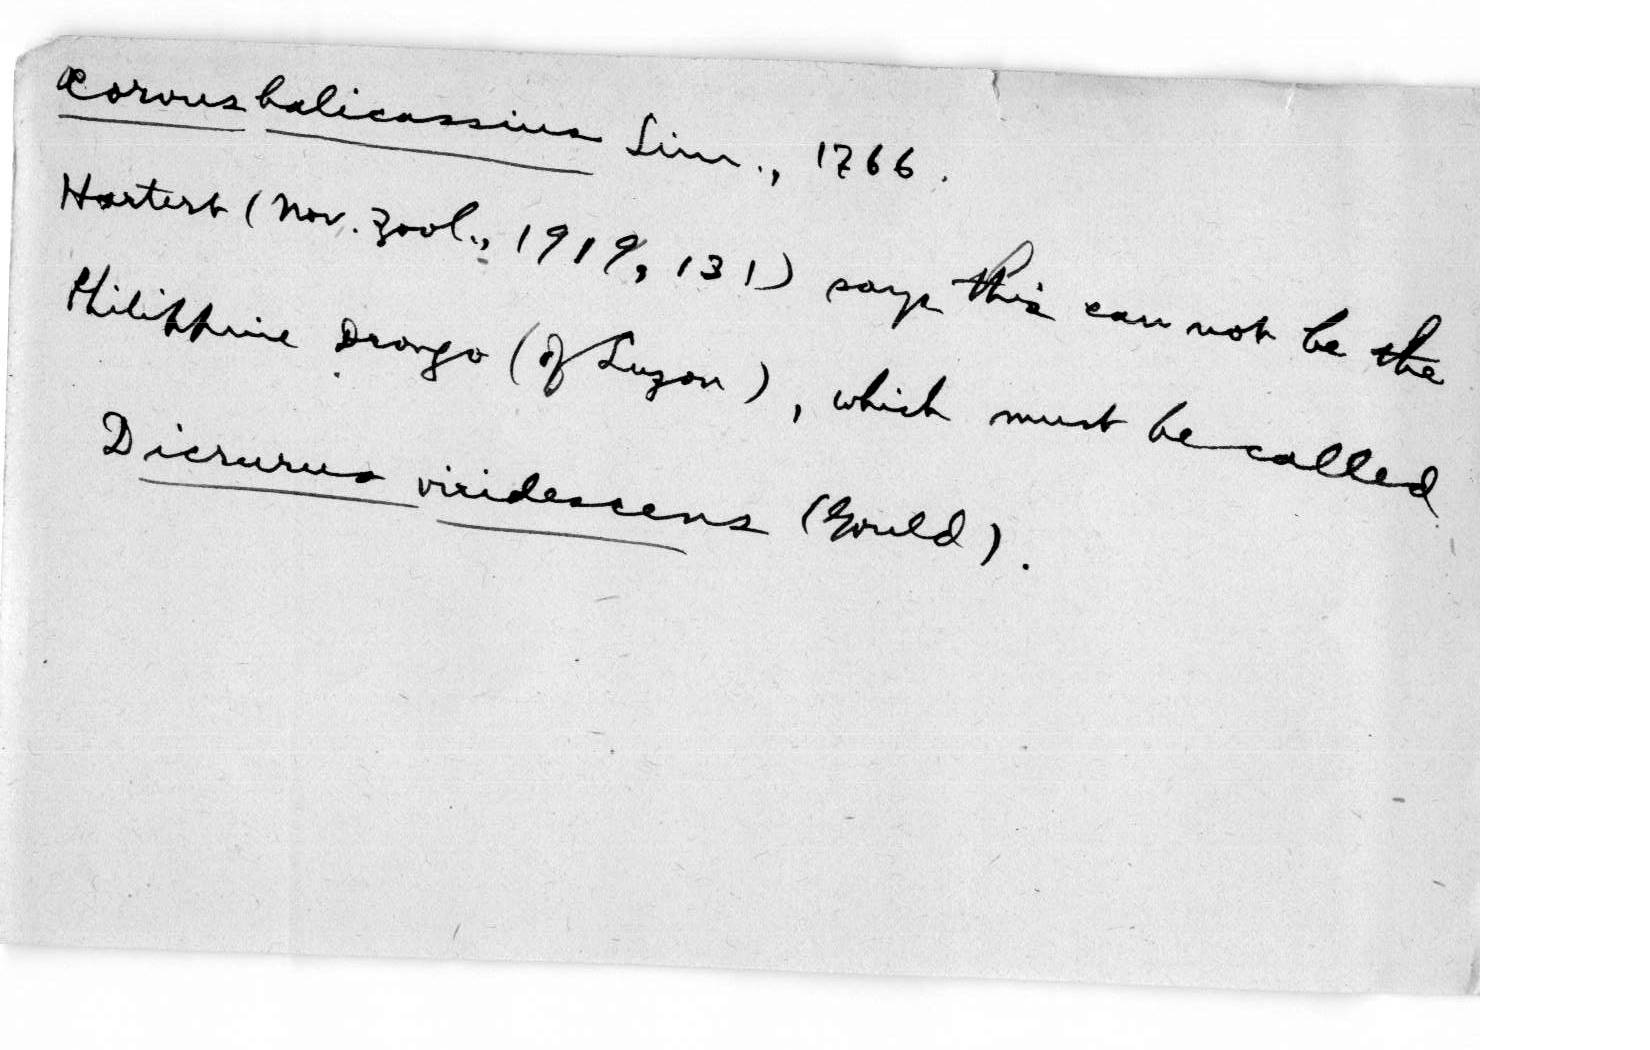 Corvus balicassius Linn., 1766.
Hartert (Nov. Zool., 1919, 131) says this can not be the
Philippine Drongo (of Luzon), which must be called
Dicrurus viridescens (Gould).